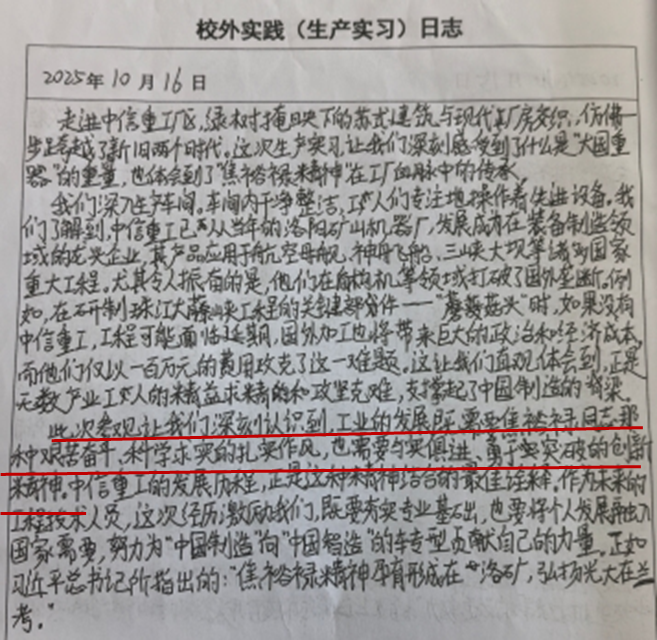 校外实践（生产实习）日志
2025年10月16日
走进中信重工厂区，绿树掩映下的苏式建筑与现代厂房交织，仿佛一
步跨越了新旧两个时代。这次生产实习让我们深刻感受到了什么是"大国重
器"的重量，也体会到了"焦裕禄精神"在工厂血脉中的传承。
我们深入生产车间。车间内干净整洁，工人们专注地操作着先进设备。我
们了解到，中信重工已从当年的洛阳矿山机器厂，发展成为在装备制造领
域的龙头企业，其产品应用于航空母舰，神舟飞船，三峡大坝等诸多国家
重大工程。尤其令人振奋的是，他们在盾构机等领域打破了国外垄断。例
如，在研制珠江大藤峡工程的关键部件——"蘑菇头"时，如果没有
中信重工，工程可能面临延期，国外加工也将带来巨大的政治和经济成本，
而他们仅以一百万元的费用攻克了这一难题。这让我们直观体会到，正是
无数产业工人的精益求精的和攻坚克难，支撑起了中国制造的脊梁。
此次参观让我们深刻认识到，工业的发展既需要焦裕禄同志那
种艰苦奋斗、科学求实的扎实作风，也需要与实俱进、勇于突破的创新
精神。中信重工的发展历程，正是这种精神结合的最佳诠释。作为未来的
工程技术人员，这次经历激励我们，既要夯实专业基础，也要将个人发展融入
国家需要，努力为"中国制造"向"中国智造"的转型贡献自己的力量。正如
习近平总书记所指出的："焦裕禄精神孕育形成在洛矿，弘扬光大在兰
考。"